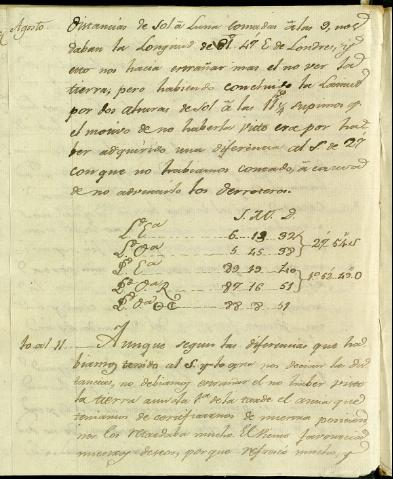 Agosto
distancias de Sol á Luna tomadas á las 9, nos
daban la Longitud de 47' E de Londres, y
esto nos hacia estrañar mas el no ver la
tierra; pero habiendo concluido la Latitud
por dos alturas de Sol á las 11 supimos q
el motivo de no haberla visto era por ha
ber adquirido una diferencia al S de 27'
con que no habiamos contado, á causa
de no advertirlo los derroteros.
S. M. D.
6 13 32
5 45 38
27' 54 S
89 19 40
87 16 51
1º 52' 49 O
88 8 51
10 al 11 Aunque segun las diferencias que ha
biamos tenido al S. y lo que nos decian las dis
tancias, no debiamos estrañar el no haber visto
la tierra aun á la 1ª de la tarde el ansia que
teniamos de certificarnos de nuestra posicion
nos los retardaba mucho. El tiempo favorecia
nuestros deseos, porque refrescó mucho, y